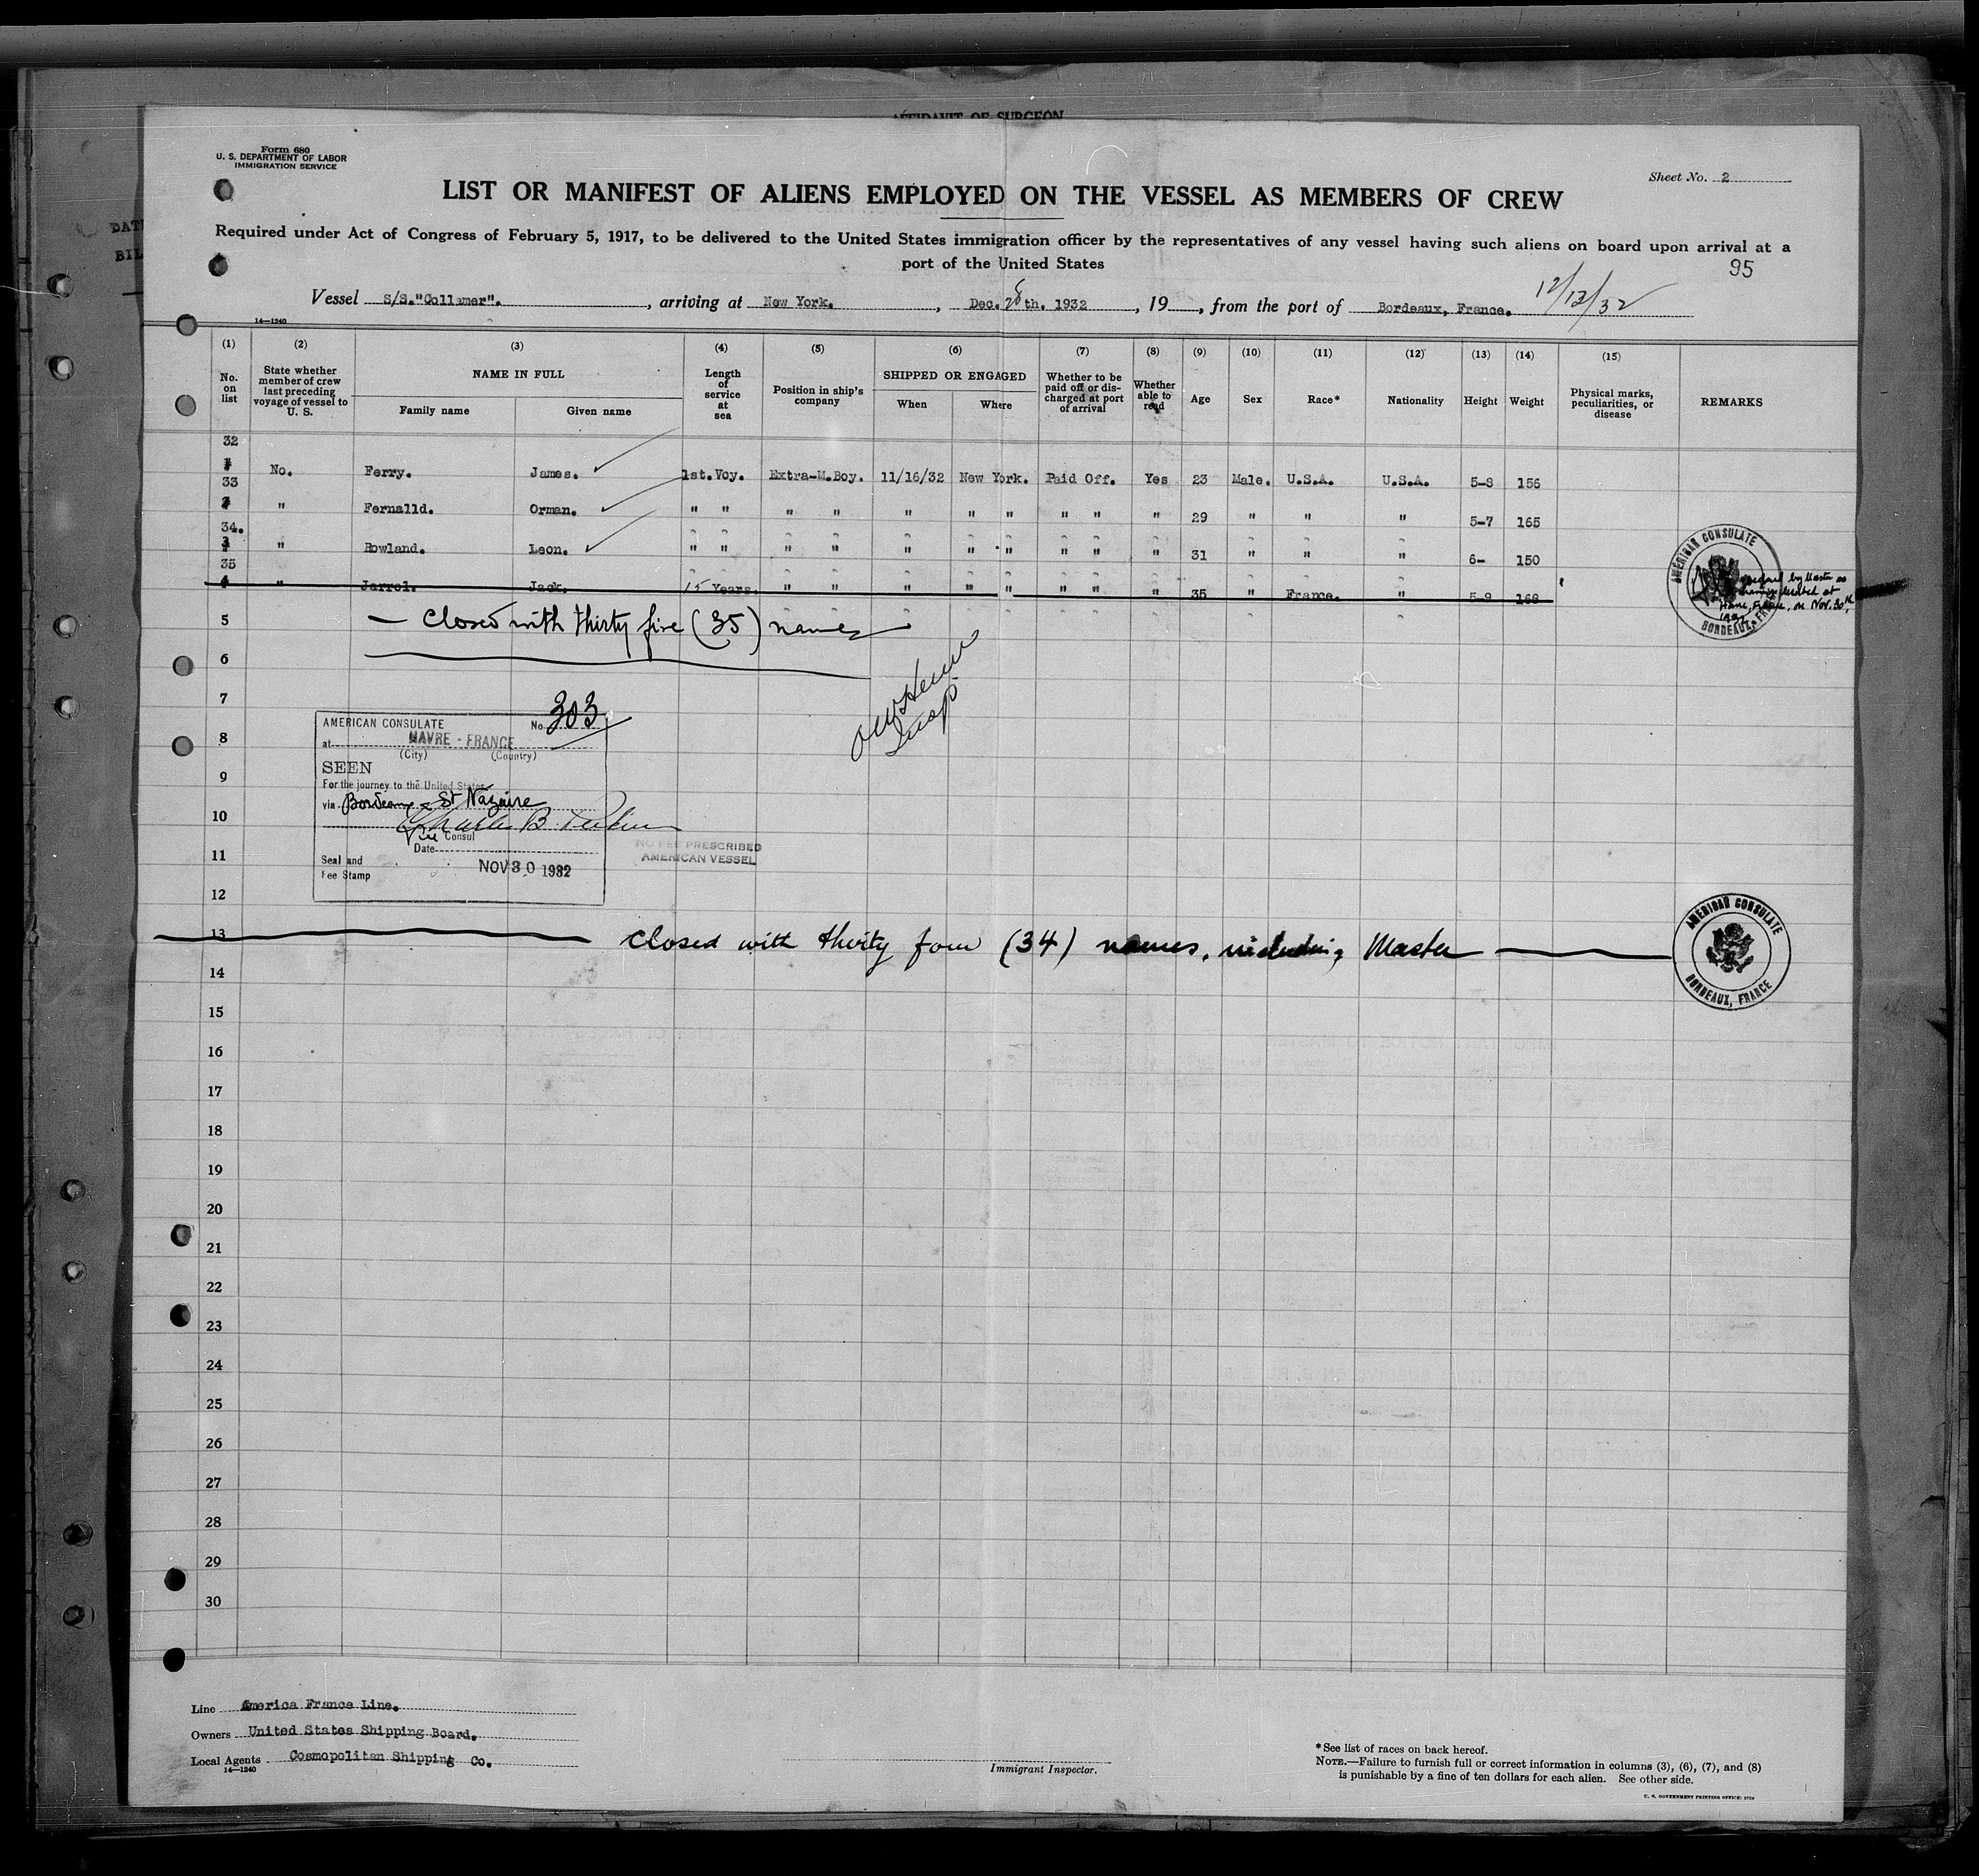 AFFIDAVIT OF SURGEON
Form 680
U. S. DEPARTMENT OF LABOR
IMMIGRATION SERVICE
Sheet No. 2
LIST OR MANIFEST OF ALIENS EMPLOYED ON THE VESSEL AS MEMBERS OF CREW
Required under Act of Congress of February 5, 1917, to be delivered to the United States immigration officer by the representatives of any vessel having such aliens on board upon arrival at a
port of the United States
95
Vessel S/S."Collamer"., arriving at New York., Dec. 28th. 1932, 19, from the port of Bordeaux, France. 12/13/32
14—1240
(1) (2) (3) (4) (5) (6) (7) (8) (9) (10) (11) (12) (13) (14) (15)
No. on list
State whether member of crew last preceding voyage of vessel to U. S.
NAME IN FULL
Family name Given name
Length of service at sea
Position in ship's company
SHIPPED OR ENGAGED
When Where
Whether to be paid off or discharged at port of arrival
Whether able to read
Age Sex Race* Nationality Height Weight
Physical marks, peculiarities, or disease
REMARKS
32
1 No. Ferry. James. 1st.Voy. Extra-M.Boy. 11/16/32 New York. Paid Off. Yes 23 Male. U.S.A. U.S.A. 5-8 156
33
2 " Fernalld. Orman. " " " " " " " " " " 29 " " " 5-7 165
34.
3 " Rowland. Leon. " " " " " " " " " " 31 " " " 6- 150
35
4 " Jarrol. Jack. 15 Years. " " " " " " " " 35 " France. " 5-9 168
by Master as
having deserted at
Havre, France, on Nov. 30th,
1932.
AMERICAN CONSULATE
BORDEAUX, FRANCE
5 — Closed with thirty five (35) names
6
7
8
9
10
11
12
13
14
15
16
17
18
19
20
21
22
23
24
25
26
27
28
29
30
AMERICAN CONSULATE No. 303
at HAVRE - FRANCE
(City) (Country)
SEEN
For the journey to the United States
via Bordeaux & St Nazaire
Charles B.
Vice Consul
Date
Seal and
Fee Stamp
NOV 30 1932
NO FEE PRESCRIBED
AMERICAN VESSEL
closed with thirty four (34) names, including Master
AMERICAN CONSULATE
BORDEAUX, FRANCE
Line America France Line.
Owners United States Shipping Board.
Local Agents Cosmopolitan Shipping Co.
14—1240
Immigrant Inspector.
*See list of races on back hereof.
NOTE.—Failure to furnish full or correct information in columns (3), (6), (7), and (8)
is punishable by a fine of ten dollars for each alien. See other side.